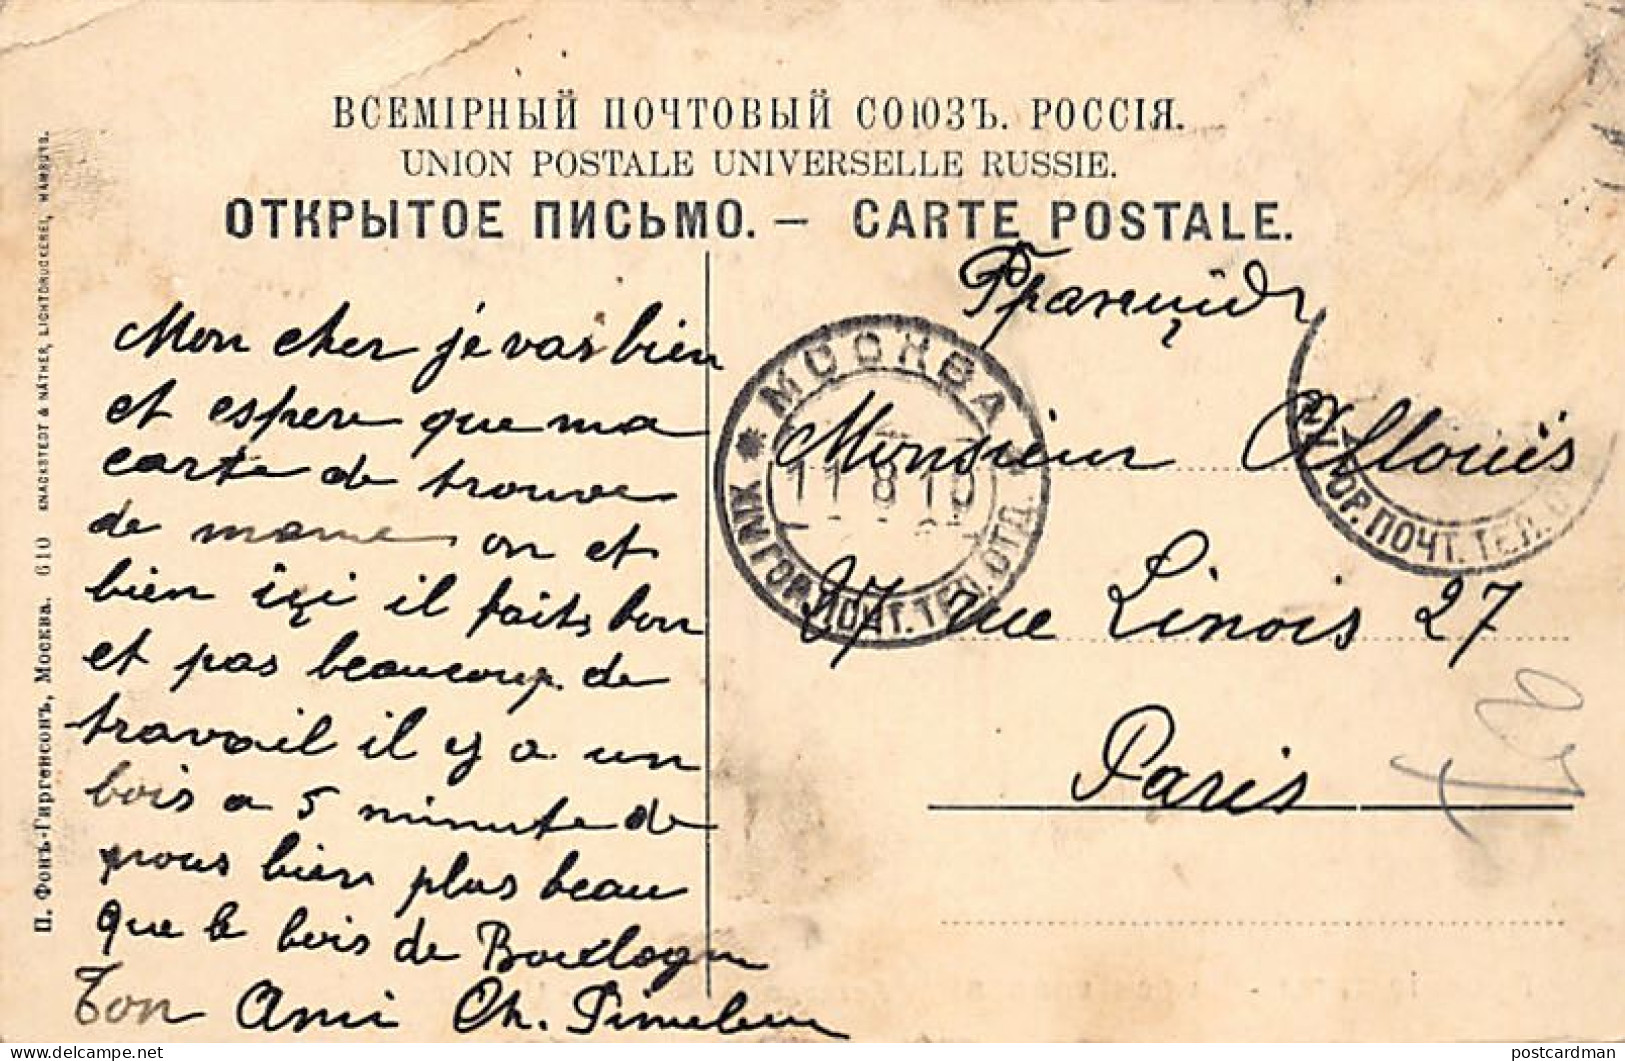 ВСЕМІРНЫЙ ПОЧТОВЫЙ СОЮЗЪ. РОССІЯ.
UNION POSTALE UNIVERSELLE RUSSIE.
ОТКРЫТОЕ ПИСЬМО. — CARTE POSTALE.
П. Фонъ-Гиргенсонъ, Москва. 610 KNACKSTEDT & NÄTHER, LICHTDRUCKEREI, HAMBURG.
Mon cher je vas bien
et espere que ma
carte de trouve
de mame on et
bien içi il faits bon
et pas beaucoup de
travail il y a un
bois a 5 minute de
nous bien plus beau
que le bois de Boullogne
Ton Ami Ch.
Франція
Monsieur Allouis
27 rue Linois 27
Paris
МОСКВА
11 8 10
ГОР. ПОЧТ. ТЕЛ. ОТД.
ГОР. ПОЧТ. ТЕЛ.
postcardman